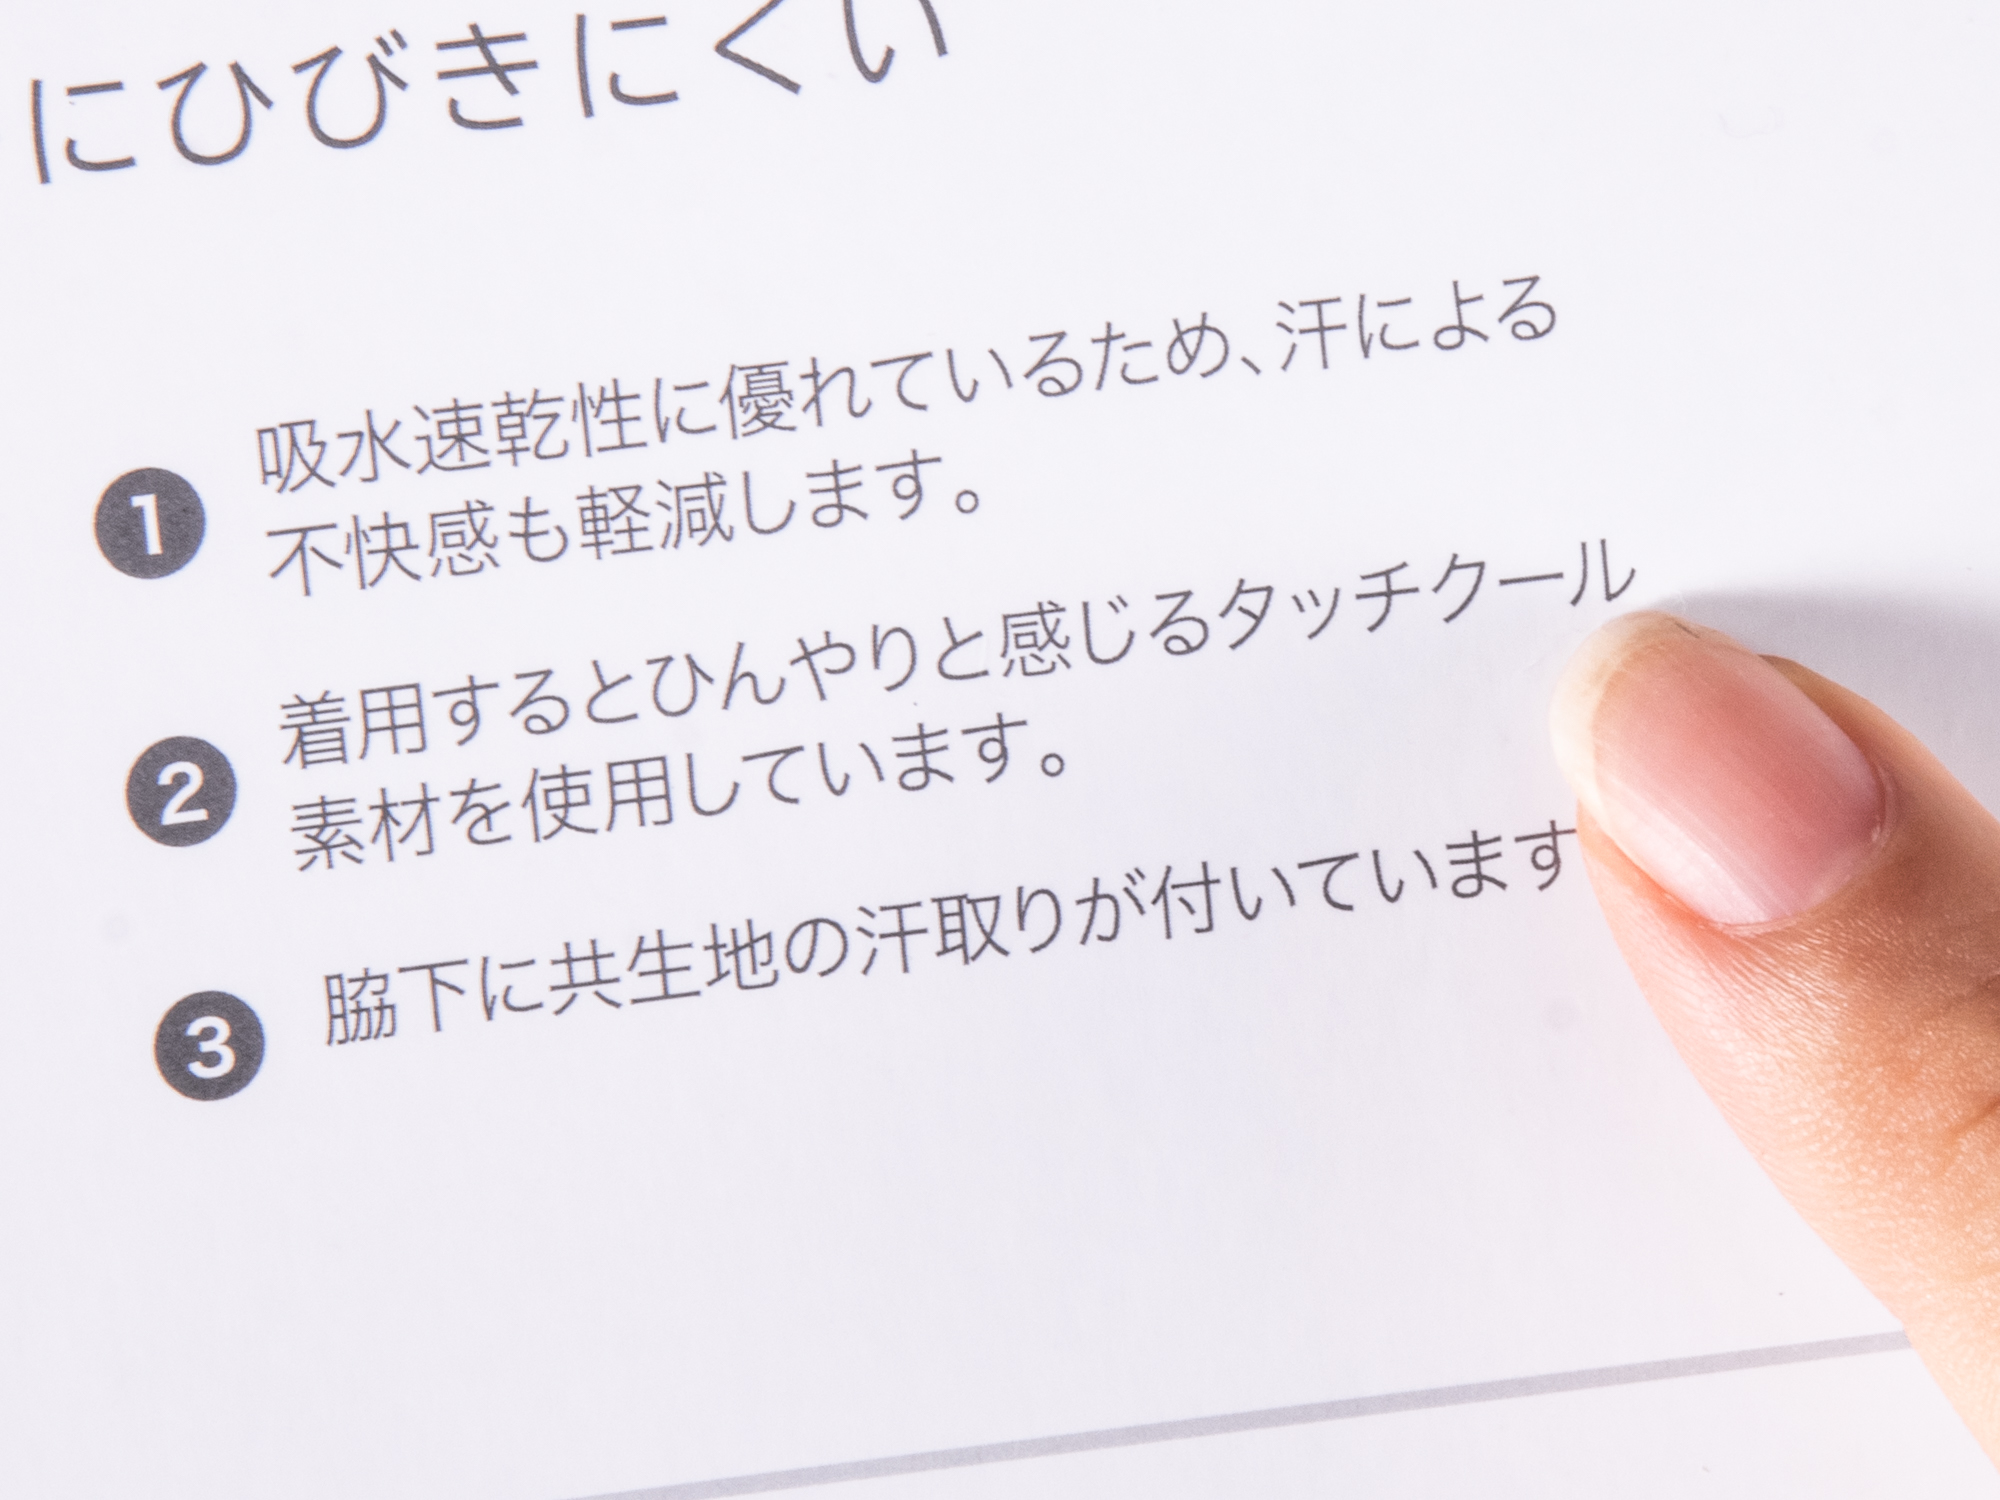 にひびきにくい
1 吸水速乾性に優れているため、汗による
不快感も軽減します。
2 着用するとひんやりと感じるタッチクール
素材を使用しています。
3 脇下に共生地の汗取りが付いています